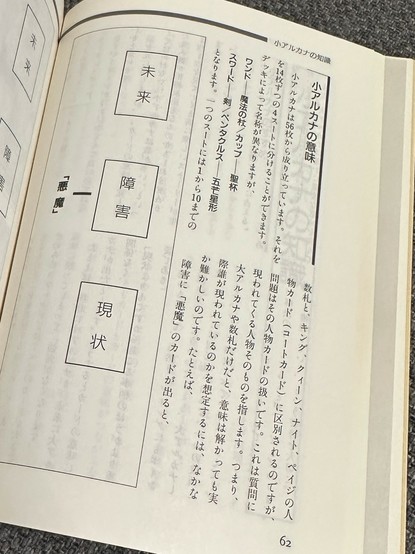 小アルカナの知識
小アルカナの意味
小アルカナは56枚から成り立っています。それを
を14枚ずつの4スートに分けることができます。
デッキによって名称が異なりますが、
ワンド──魔法の杖/カップ──聖杯
スワード──剣/ペンタクルス──五芒星形
となります。一つのスートには1から10までの
数札と、キング、クィーン、ナイト、ペイジの人
物カード(コートカード)に区別されるのですが、
問題はその人物カードの扱いです。これは質問に
現われてくる人物そのものを指します。つまり、
大アルカナや数札だけだと、意味は解かっても実
際誰が現われているのかを想定するには、なかな
か難かしいのです。たとえば、
障害に「悪魔」のカードが出ると、
未来
障害
「悪魔」
現状
未来
障害
62